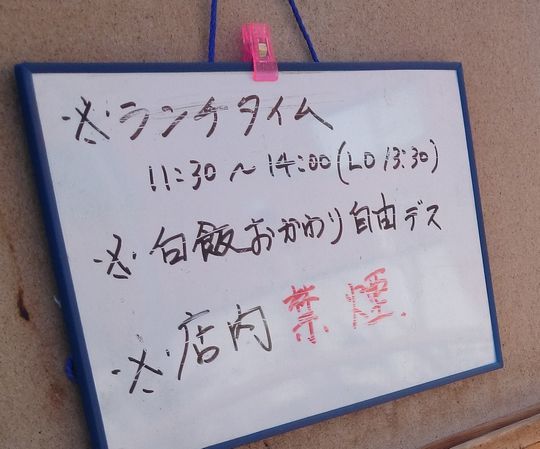 ※ランチタイム
11:30～14:00(LO 13:30)
※白飯おかわり自由デス
※店内禁煙